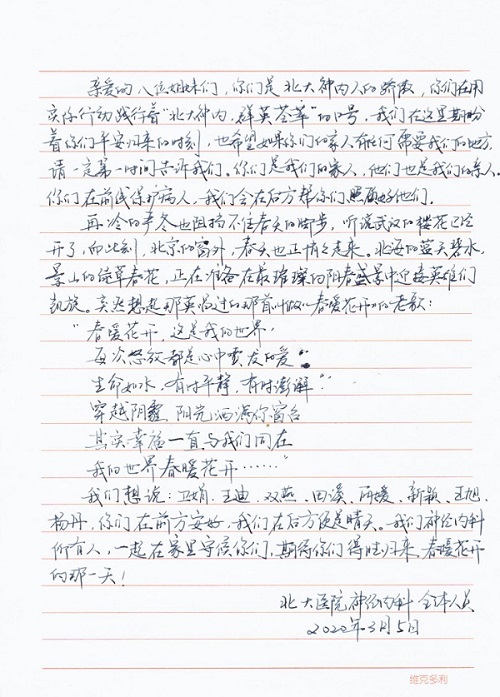 亲爱的八位姐妹们，你们是北大神内人的骄傲，你们在用
实际行动践行着"北大神内，群英荟萃"的口号，我们在这里期盼
着你们平安归来的时刻，也希望如果你们的家人有任何需要我们的地方，
请一定第一时间告诉我们。你们是我们的家人，他们也是我们的亲人。
你们在前线保护病人，我们会在后方帮你们照顾好他们。
再冷的严冬也阻挡不住春天的脚步，听说武汉的樱花已经
开了，而此刻，北京的窗外，春天也正悄悄走来。北海的蓝天碧水，
景山的绿草春花，正在准备在最璀璨的阳春盛景中迎接英雄们
凯旋。突然想起那英唱过的那首叫做《春暖花开》的老歌：
"春暖花开，这是我的世界.
每次怒放都是心中喷发的爱"
生命如水.有时平静.有时澎湃
穿越阴霾 阳光洒满你窗台
其实幸福一直与我们同在
我的世界春暖花开……"
我们想说：卫娟、王迪、双燕、田溪、雨媛、新颖、王旭、
杨丹，你们在前方安好，我们在后方便是晴天。我们神经内科
所有人，一起在家里守候你们，期待你们得胜归来，春暖花开
的那一天！
北大医院神经内科 全体人员
2020年3月5日
维克多利